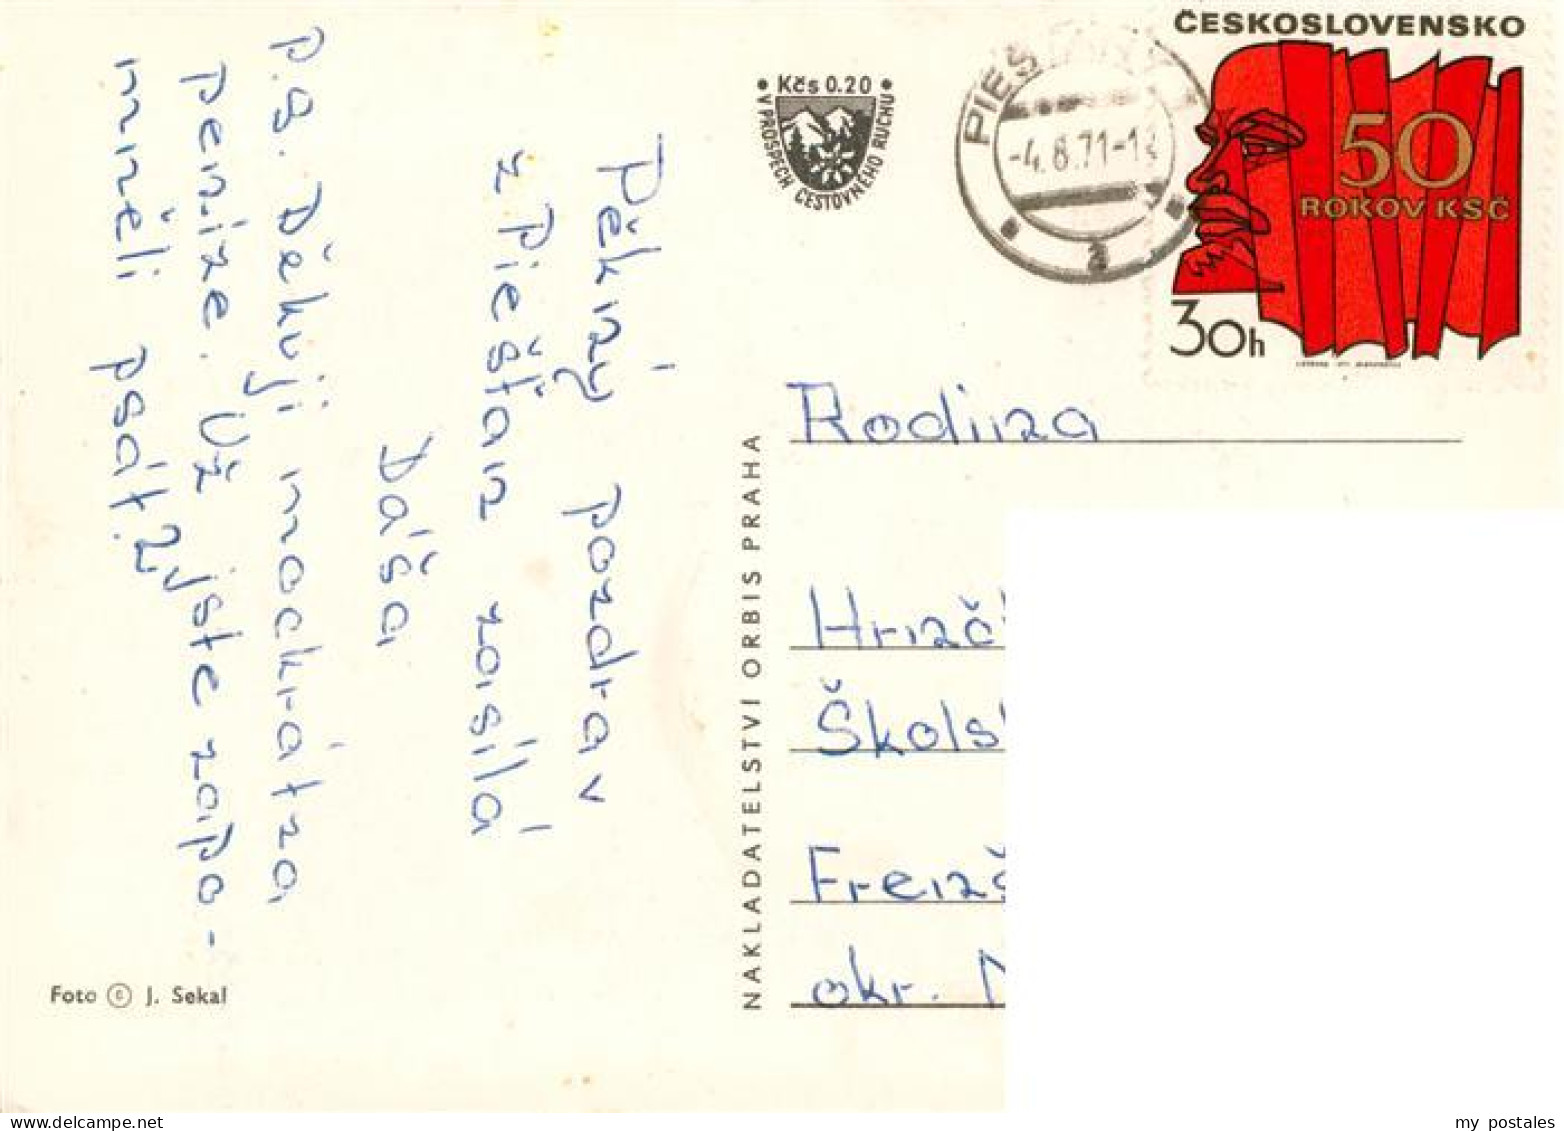 Pěkný pozdrav
z Piešťan zasílá
Dáša
P.S. Děkuji mockrát za
peníze. Už jste zapo-
mněli psát?
Foto © J. Sekal
NAKLADATELSTVÍ ORBIS PRAHA
• Kčs 0.20 •
V PROSPĚCH CESTOVNÉHO RUCHU
PIEŠ
-4.8.71-1
a
ČESKOSLOVENSKO
50
ROKOV KSČ
30h
Rodina
Hrnč
Škols
Frenš
okr. N
my postales